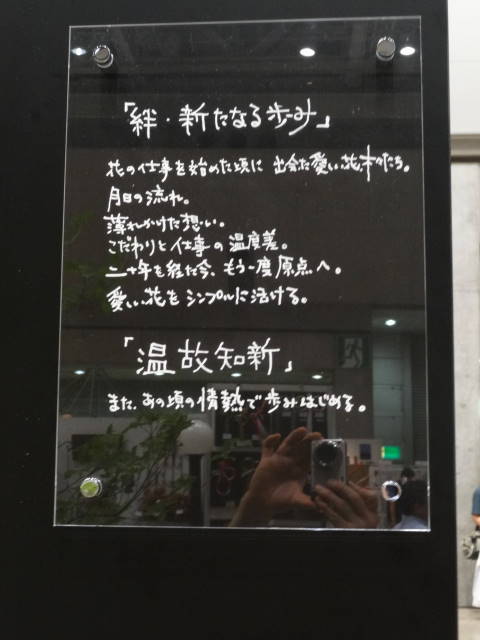 「絆・新たなる歩み」
花の仕事を始めた頃に 出会た愛しい花、木々たち。
月日の流れ。
薄れかけた想い。
こだわりと仕事の温度差。
二十年を経た今、もう一度原点へ。
愛しい花をシンプルに活ける。
「温故知新」
また、あの頃の情熱で歩みはじめる。